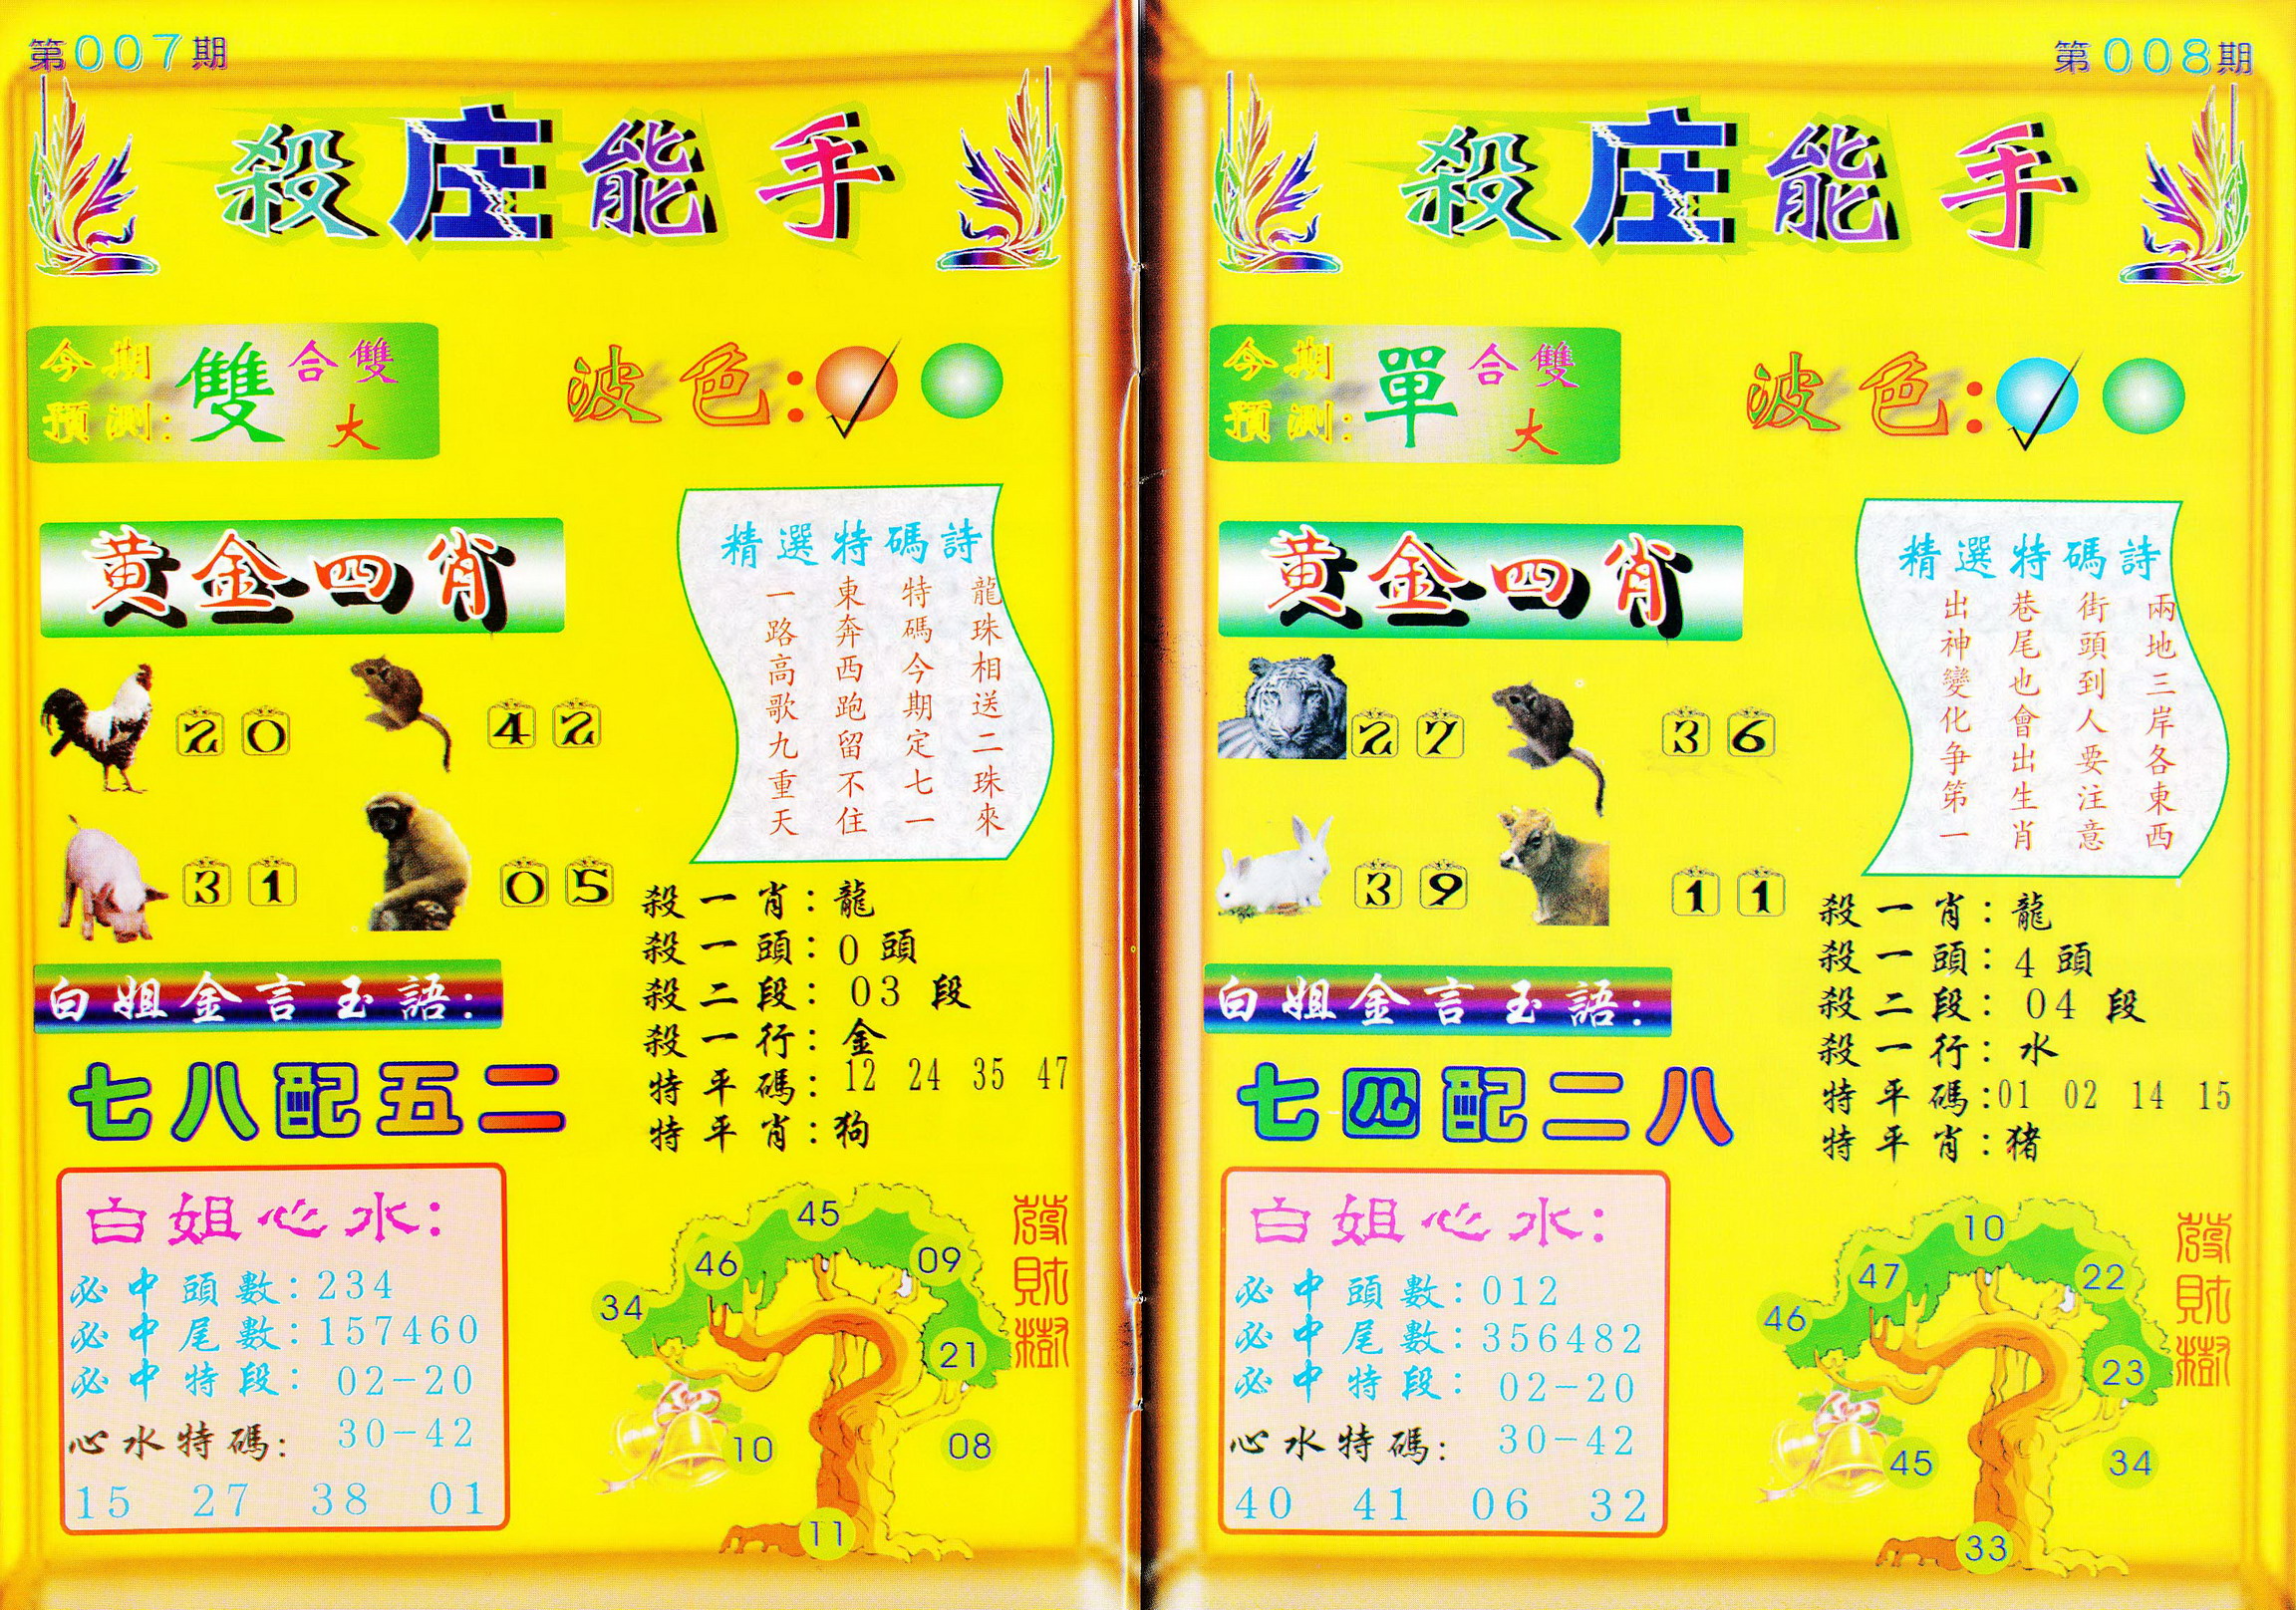 第007期
殺庄能手
今期預測:雙 合雙 大
波色:
黃金四肖
20 42
31 05
精選特碼詩
龍珠相送二珠來
特碼今期定七一
東奔西跑留不住
一路高歌九重天
殺一肖:龍
殺一頭:0頭
殺二段:03段
殺一行:金
特平碼:12 24 35 47
特平肖:狗
白姐金言玉語:
七八配五二
白姐心水:
必中頭數:234
必中尾數:157460
必中特段:02-20
30-42
心水特碼:
15 27 38 01
發財樹
45
46
09
34
21
10
08
11
第008期
殺庄能手
今期預測:單 合雙 大
波色:
黃金四肖
27 36
39 11
精選特碼詩
兩地三岸各東西
街頭到人要注意
巷尾也會出生肖
出神變化争第一
殺一肖:龍
殺一頭:4頭
殺二段:04段
殺一行:水
特平碼:01 02 14 15
特平肖:猪
白姐金言玉語:
七四配二八
白姐心水:
必中頭數:012
必中尾數:356482
必中特段:02-20
30-42
心水特碼:
40 41 06 32
發財樹
10
47
22
46
23
45
34
33